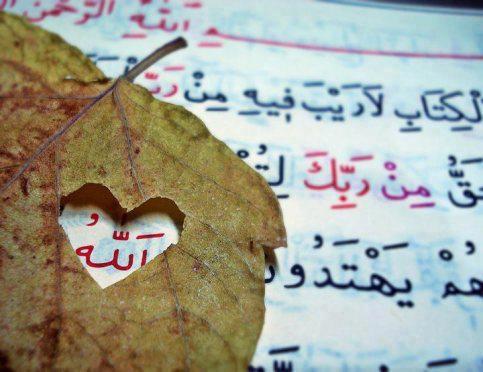 مِ اللّٰهِ الرَّحْمٰنِ
لْكِتَابِ لَارَيْبَ فِيهِ مِنْ رَبِّ
حَقُّ مِنْ رَبِّكَ لِتُنْ
هُمْ يَهْتَدُونَ
اَللّٰهُ